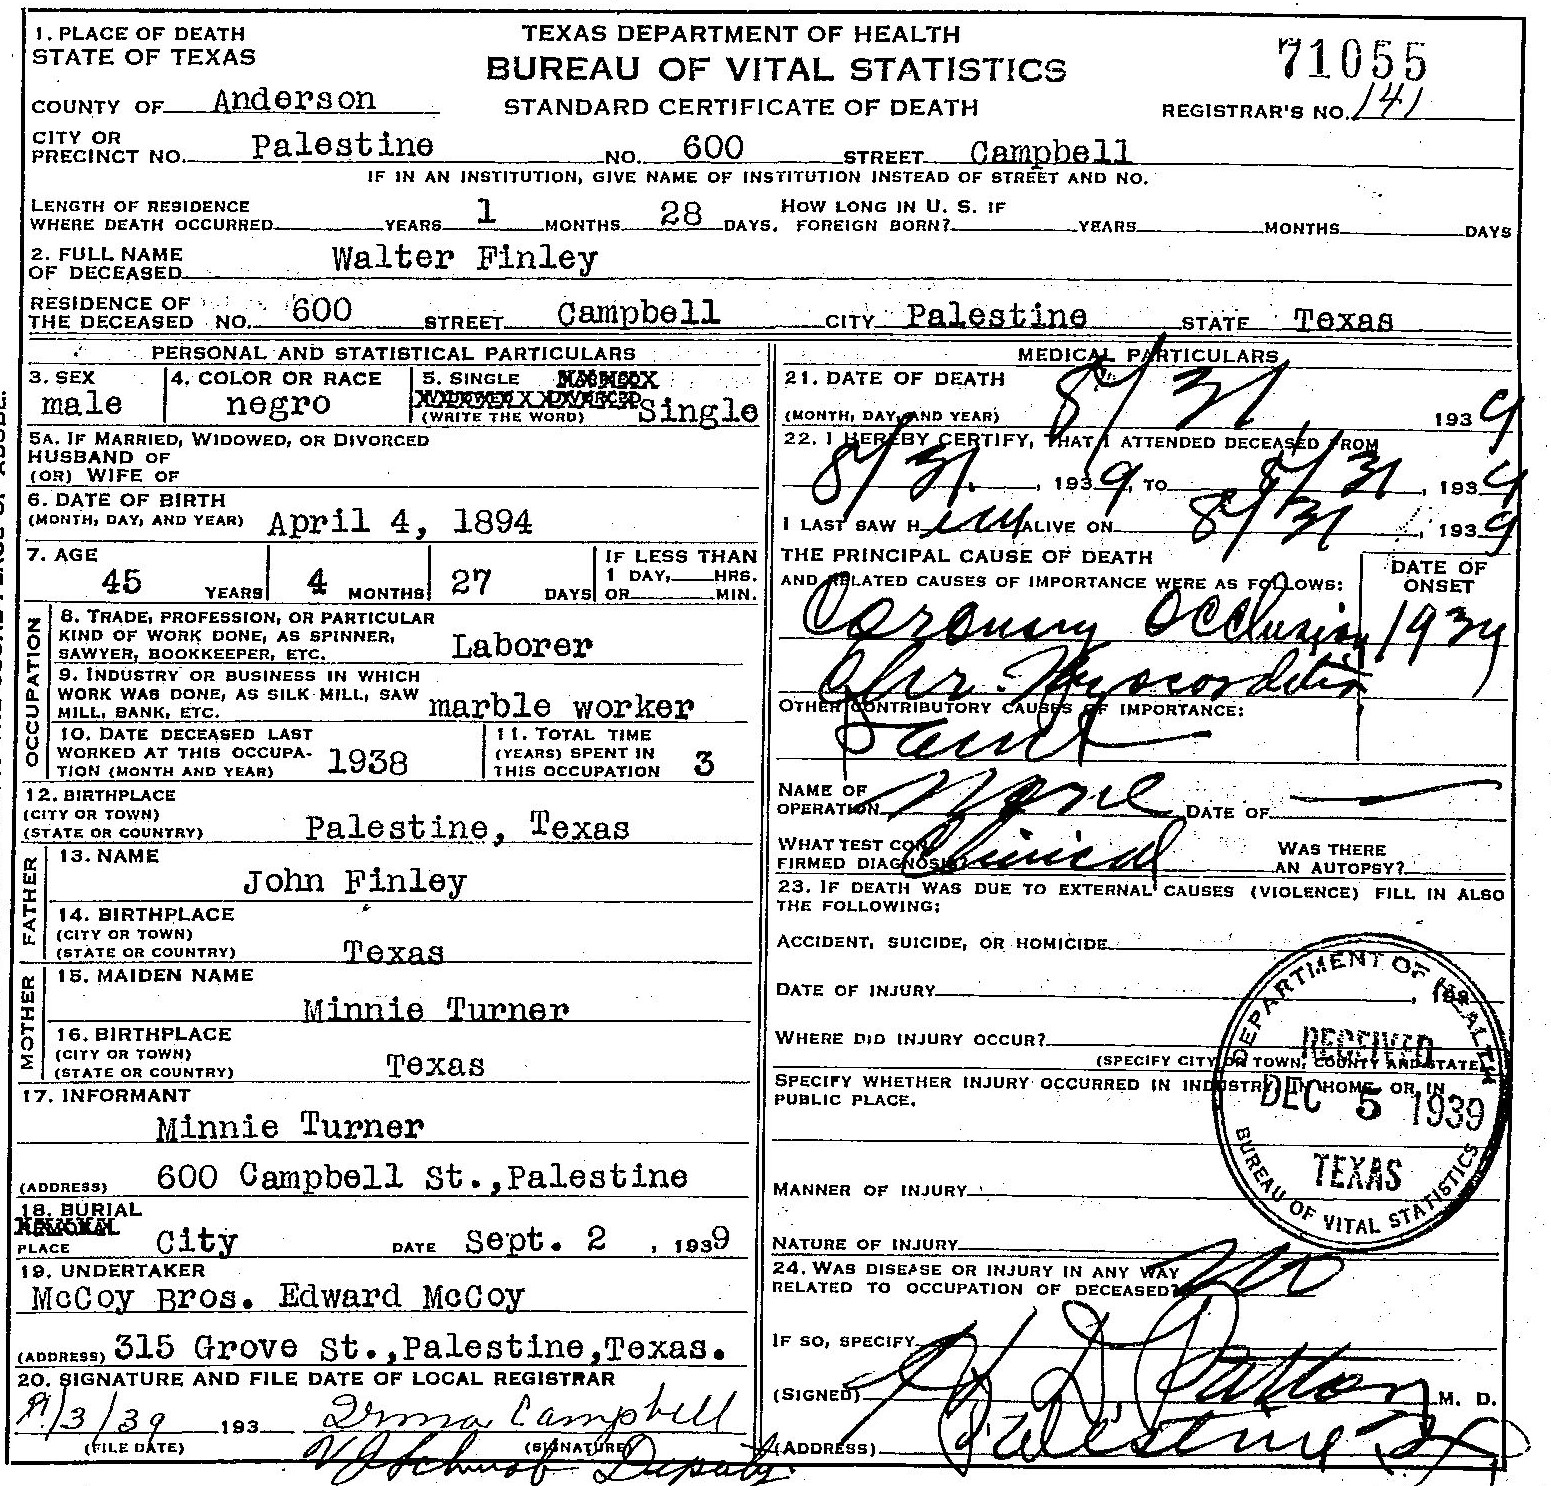 1. PLACE OF DEATH
STATE OF TEXAS
TEXAS DEPARTMENT OF HEALTH
BUREAU OF VITAL STATISTICS
STANDARD CERTIFICATE OF DEATH
71055
REGISTRAR'S NO. 141
COUNTY OF Anderson
CITY OR PRECINCT NO. Palestine NO. 600 STREET Campbell
IF IN AN INSTITUTION, GIVE NAME OF INSTITUTION INSTEAD OF STREET AND NO.
LENGTH OF RESIDENCE WHERE DEATH OCCURRED YEARS 1 MONTHS 28 DAYS. HOW LONG IN U. S. IF FOREIGN BORN? YEARS MONTHS DAYS
2. FULL NAME OF DECEASED Walter Finley
RESIDENCE OF THE DECEASED NO. 600 STREET Campbell CITY Palestine STATE Texas
PERSONAL AND STATISTICAL PARTICULARS
3. SEX male
4. COLOR OR RACE negro
5. SINGLE
(WRITE THE WORD) Single
5A. IF MARRIED, WIDOWED, OR DIVORCED
HUSBAND OF
(OR) WIFE OF
6. DATE OF BIRTH
(MONTH, DAY, AND YEAR) April 4, 1894
7. AGE 45 YEARS 4 MONTHS 27 DAYS
IF LESS THAN
1 DAY, HRS.
OR MIN.
OCCUPATION
8. TRADE, PROFESSION, OR PARTICULAR
KIND OF WORK DONE, AS SPINNER,
SAWYER, BOOKKEEPER, ETC. Laborer
9. INDUSTRY OR BUSINESS IN WHICH
WORK WAS DONE, AS SILK MILL, SAW
MILL, BANK, ETC. marble worker
10. DATE DECEASED LAST
WORKED AT THIS OCCUPA-
TION (MONTH AND YEAR) 1938
11. TOTAL TIME
(YEARS) SPENT IN
THIS OCCUPATION 3
12. BIRTHPLACE
(CITY OR TOWN)
(STATE OR COUNTRY) Palestine, Texas
FATHER
13. NAME
John Finley
14. BIRTHPLACE
(CITY OR TOWN)
(STATE OR COUNTRY) Texas
MOTHER
15. MAIDEN NAME
Minnie Turner
16. BIRTHPLACE
(CITY OR TOWN)
(STATE OR COUNTRY) Texas
17. INFORMANT
Minnie Turner
(ADDRESS) 600 Campbell St.,Palestine
18. BURIAL
PLACE City DATE Sept. 2 , 1939
19. UNDERTAKER
McCoy Bros. Edward McCoy
(ADDRESS) 315 Grove St.,Palestine,Texas.
20. SIGNATURE AND FILE DATE OF LOCAL REGISTRAR
9/3/39 193 Irma Campbell
(FILE DATE) (SIGNATURE)
Deputy
MEDICAL PARTICULARS
21. DATE OF DEATH
(MONTH, DAY, AND YEAR) 8/31 1939
22. I HEREBY CERTIFY, THAT I ATTENDED DECEASED FROM
8/31 , 1939, TO 8/31 , 1939
I LAST SAW Him ALIVE ON 8/31 1939
THE PRINCIPAL CAUSE OF DEATH
AND RELATED CAUSES OF IMPORTANCE WERE AS FOLLOWS:
DATE OF ONSET
Coronary Occlusion 1939
Chr. Myocarditis
OTHER CONTRIBUTORY CAUSES OF IMPORTANCE:
NAME OF OPERATION None DATE OF
WHAT TEST CONFIRMED DIAGNOSIS? Clinical WAS THERE AN AUTOPSY?
23. IF DEATH WAS DUE TO EXTERNAL CAUSES (VIOLENCE) FILL IN ALSO
THE FOLLOWING:
ACCIDENT, SUICIDE, OR HOMICIDE
DATE OF INJURY , 193
WHERE DID INJURY OCCUR?
(SPECIFY CITY OR TOWN, COUNTY AND STATE)
SPECIFY WHETHER INJURY OCCURRED IN INDUSTRY, IN HOME, OR IN
PUBLIC PLACE.
DEPARTMENT OF HEALTH
RECEIVED
DEC 5 1939
TEXAS
BUREAU OF VITAL STATISTICS
MANNER OF INJURY
NATURE OF INJURY
24. WAS DISEASE OR INJURY IN ANY WAY
RELATED TO OCCUPATION OF DECEASED? no
IF SO, SPECIFY
(SIGNED) H D Patton M. D.
(ADDRESS) Palestine Tx